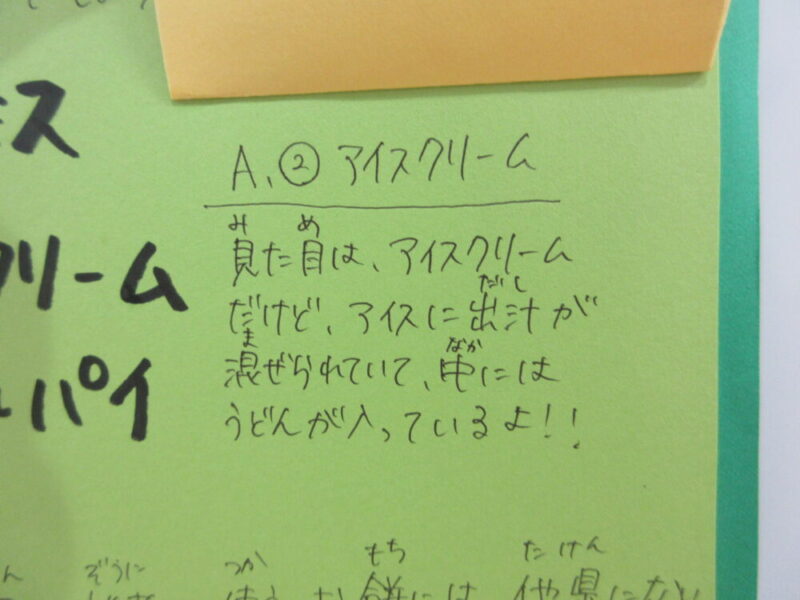 ス
A、② アイスクリーム
クリーム
み め
見た目は、アイスクリーム
だし
だけど、アイスに出汁が
パイ
ま なか
混ぜられていて、中には
うどんが入っているよ!!
ぞうに つか もち たけん
餅には 他県にない